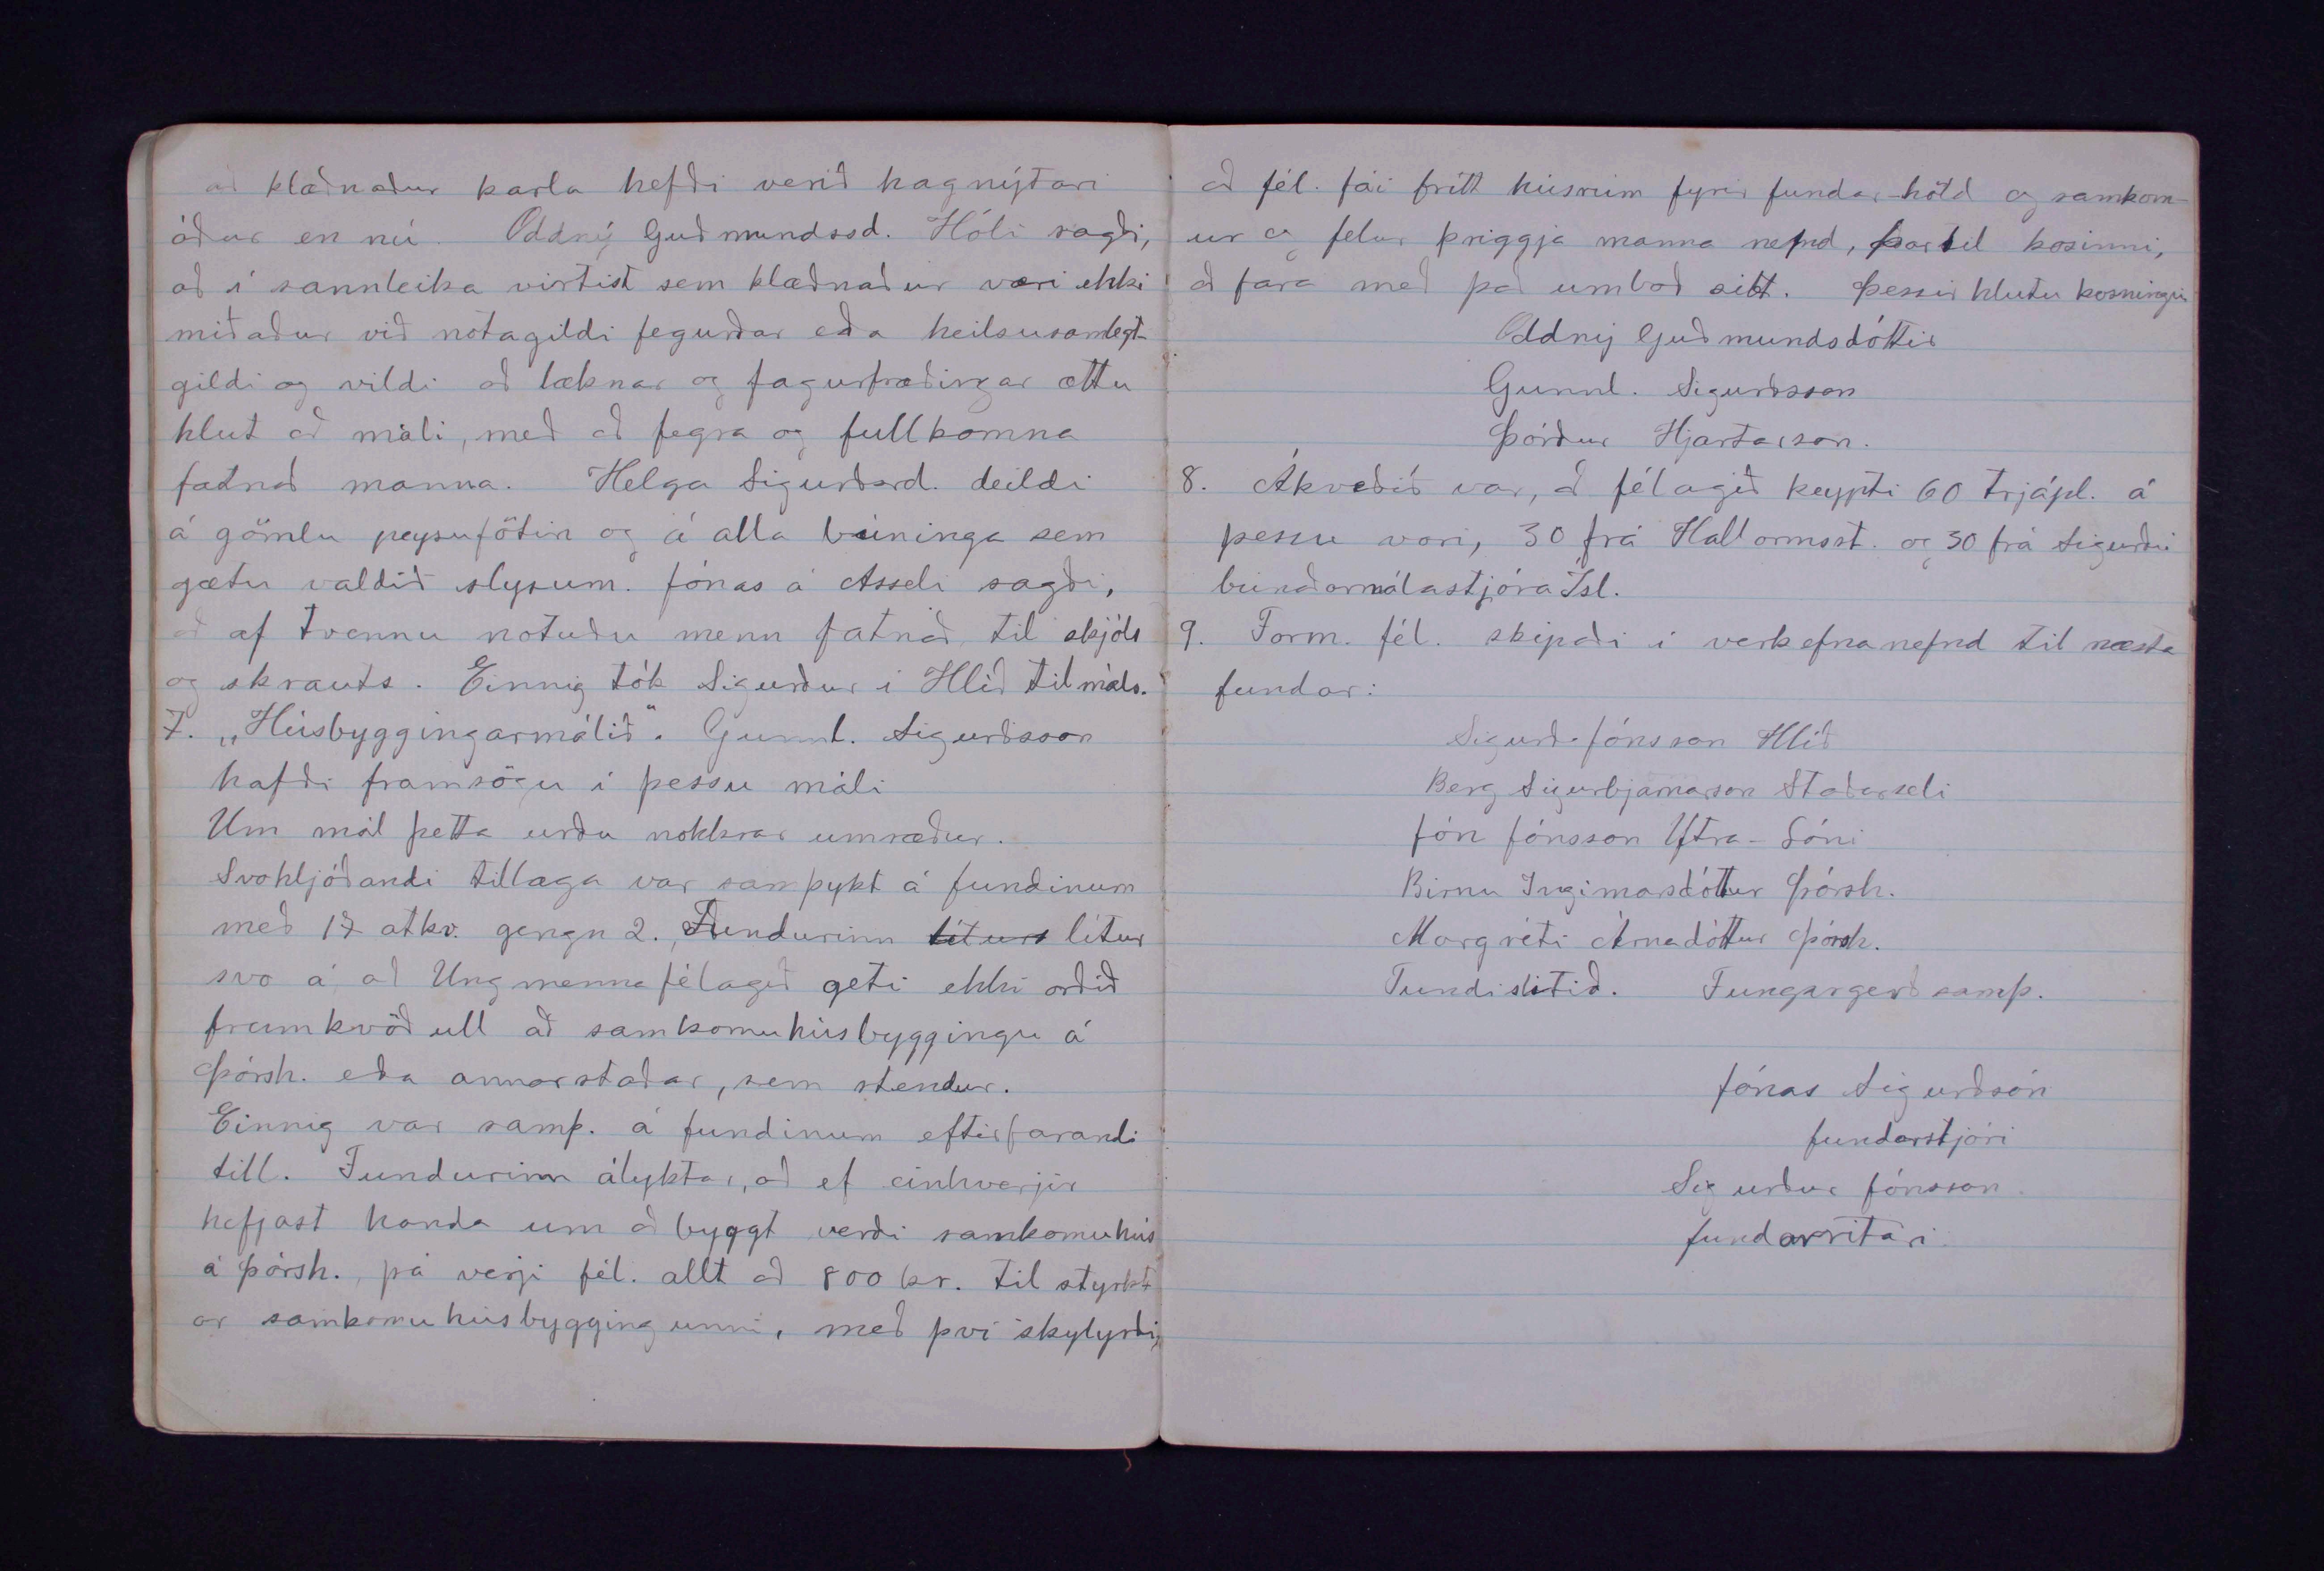 að klæðnaður karla hefði verið hagnýtari
áður en nú. Oddný Guðmundssd. Hóli sagði,
að í sannleika virtist sem klæðnaður væri ekki
miðaður við notagildi fegurðar eða heilsusamlegt-
gildi og vildi að læknar og fagurfræðingar ættu
hlut að máli, með að fegra og fullkomna
fatnað manna. Helga Sigurðard. deildi
á gömlu peysufötin og á alla búninga sem
gætu valdið slysum. Jónas á Asseli sagði,
að af tvennu notuðu menn fatnað, til skjóls
og skrauts. Einnig tók Sigurður í Hlíð til máls.
7. „Húsbyggingarmálið“. Gunnl. Sigurðsson
hafði framsögu í þessu máli
Um mál þetta urðu nokkrar umræður.
Svohljóðandi tillaga var samþykt á fundinum
með 17 atkv. gengn 2. „Fundurinn líturs lítur
svo á að Ungmennafélagið geti ekki orðið
frumkvöðull að samkomuhúsbyggingu á
Þórsh. eða annarstaðar, sem stendur.
Einnig var samþ. á fundinum eftirfarandi
till. Fundurinn ályktar, að ef einhverjir
hefjast handa um að byggt verði samkomuhús
á Þórsh., þá verji fél. allt að 800 kr. til styrkt-
ar samkomuhúsbyggingunni, með því skylyrði,
að fél. fái frítt húsrúm fyrir fundar-höld og samkom-
ur og felur þriggja manna nefnd, þar til kosinni,
að fara með það umboð sitt. Þessir hlutu kosningu
Oddný Guðmundsdóttir
Gunnl. Sigurðsson
Þórður Hjartarson.
8. Ákveðið var, að félagið keypti 60 trjápl. á
þessu vori, 30 frá Hallormsst. og 30 frá Sigurði
búnaðarmálastjóra Ísl.
9. Form. fél. skipaði í verkefnanefnd til næsta
fundar:
Sigurð Jónsson Hlíð
Berg Sigurbjarnarson Staðarseli
Jón Jónsson Ytra-Lóni
Birnu Ingimarsdóttur Þórsh.
Margréti Árnadóttur Þórsh.
Fundi slitið. Fungargerð samþ.
Jónas Sigurðsón
fundarstjóri
Sigurður Jónsson
fundarritari